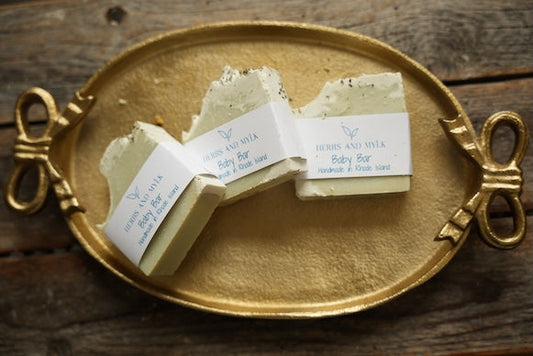 HERBS AND MYLK
Baby Bar
Handmade in Rhode Island
HERBS AND MYLK
Baby Bar
Handmade in Rhode Island
HERBS AND MYLK
Baby Bar
Handmade in Rhode Island